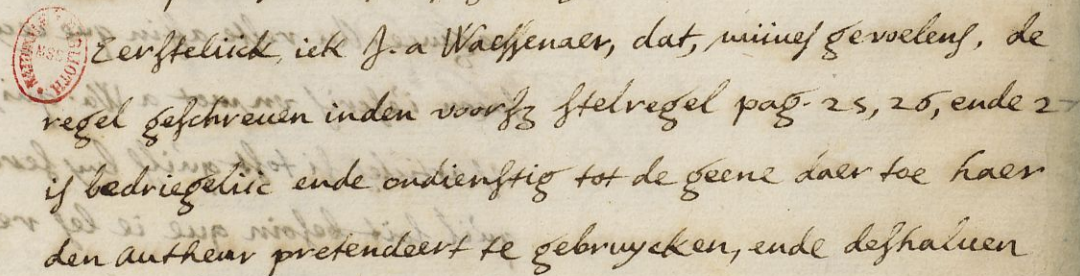 Eerstelijck, iek J. a Waessenaer, dat, mijnes gevoelens, de
regel geschreven inden voorsz stelregel pag. 25, 26, ende 2
is bedriegelijc ende ondienstig tot de geene daer toe haer
den autheur pretendeert te gebruycken, ende deshalven